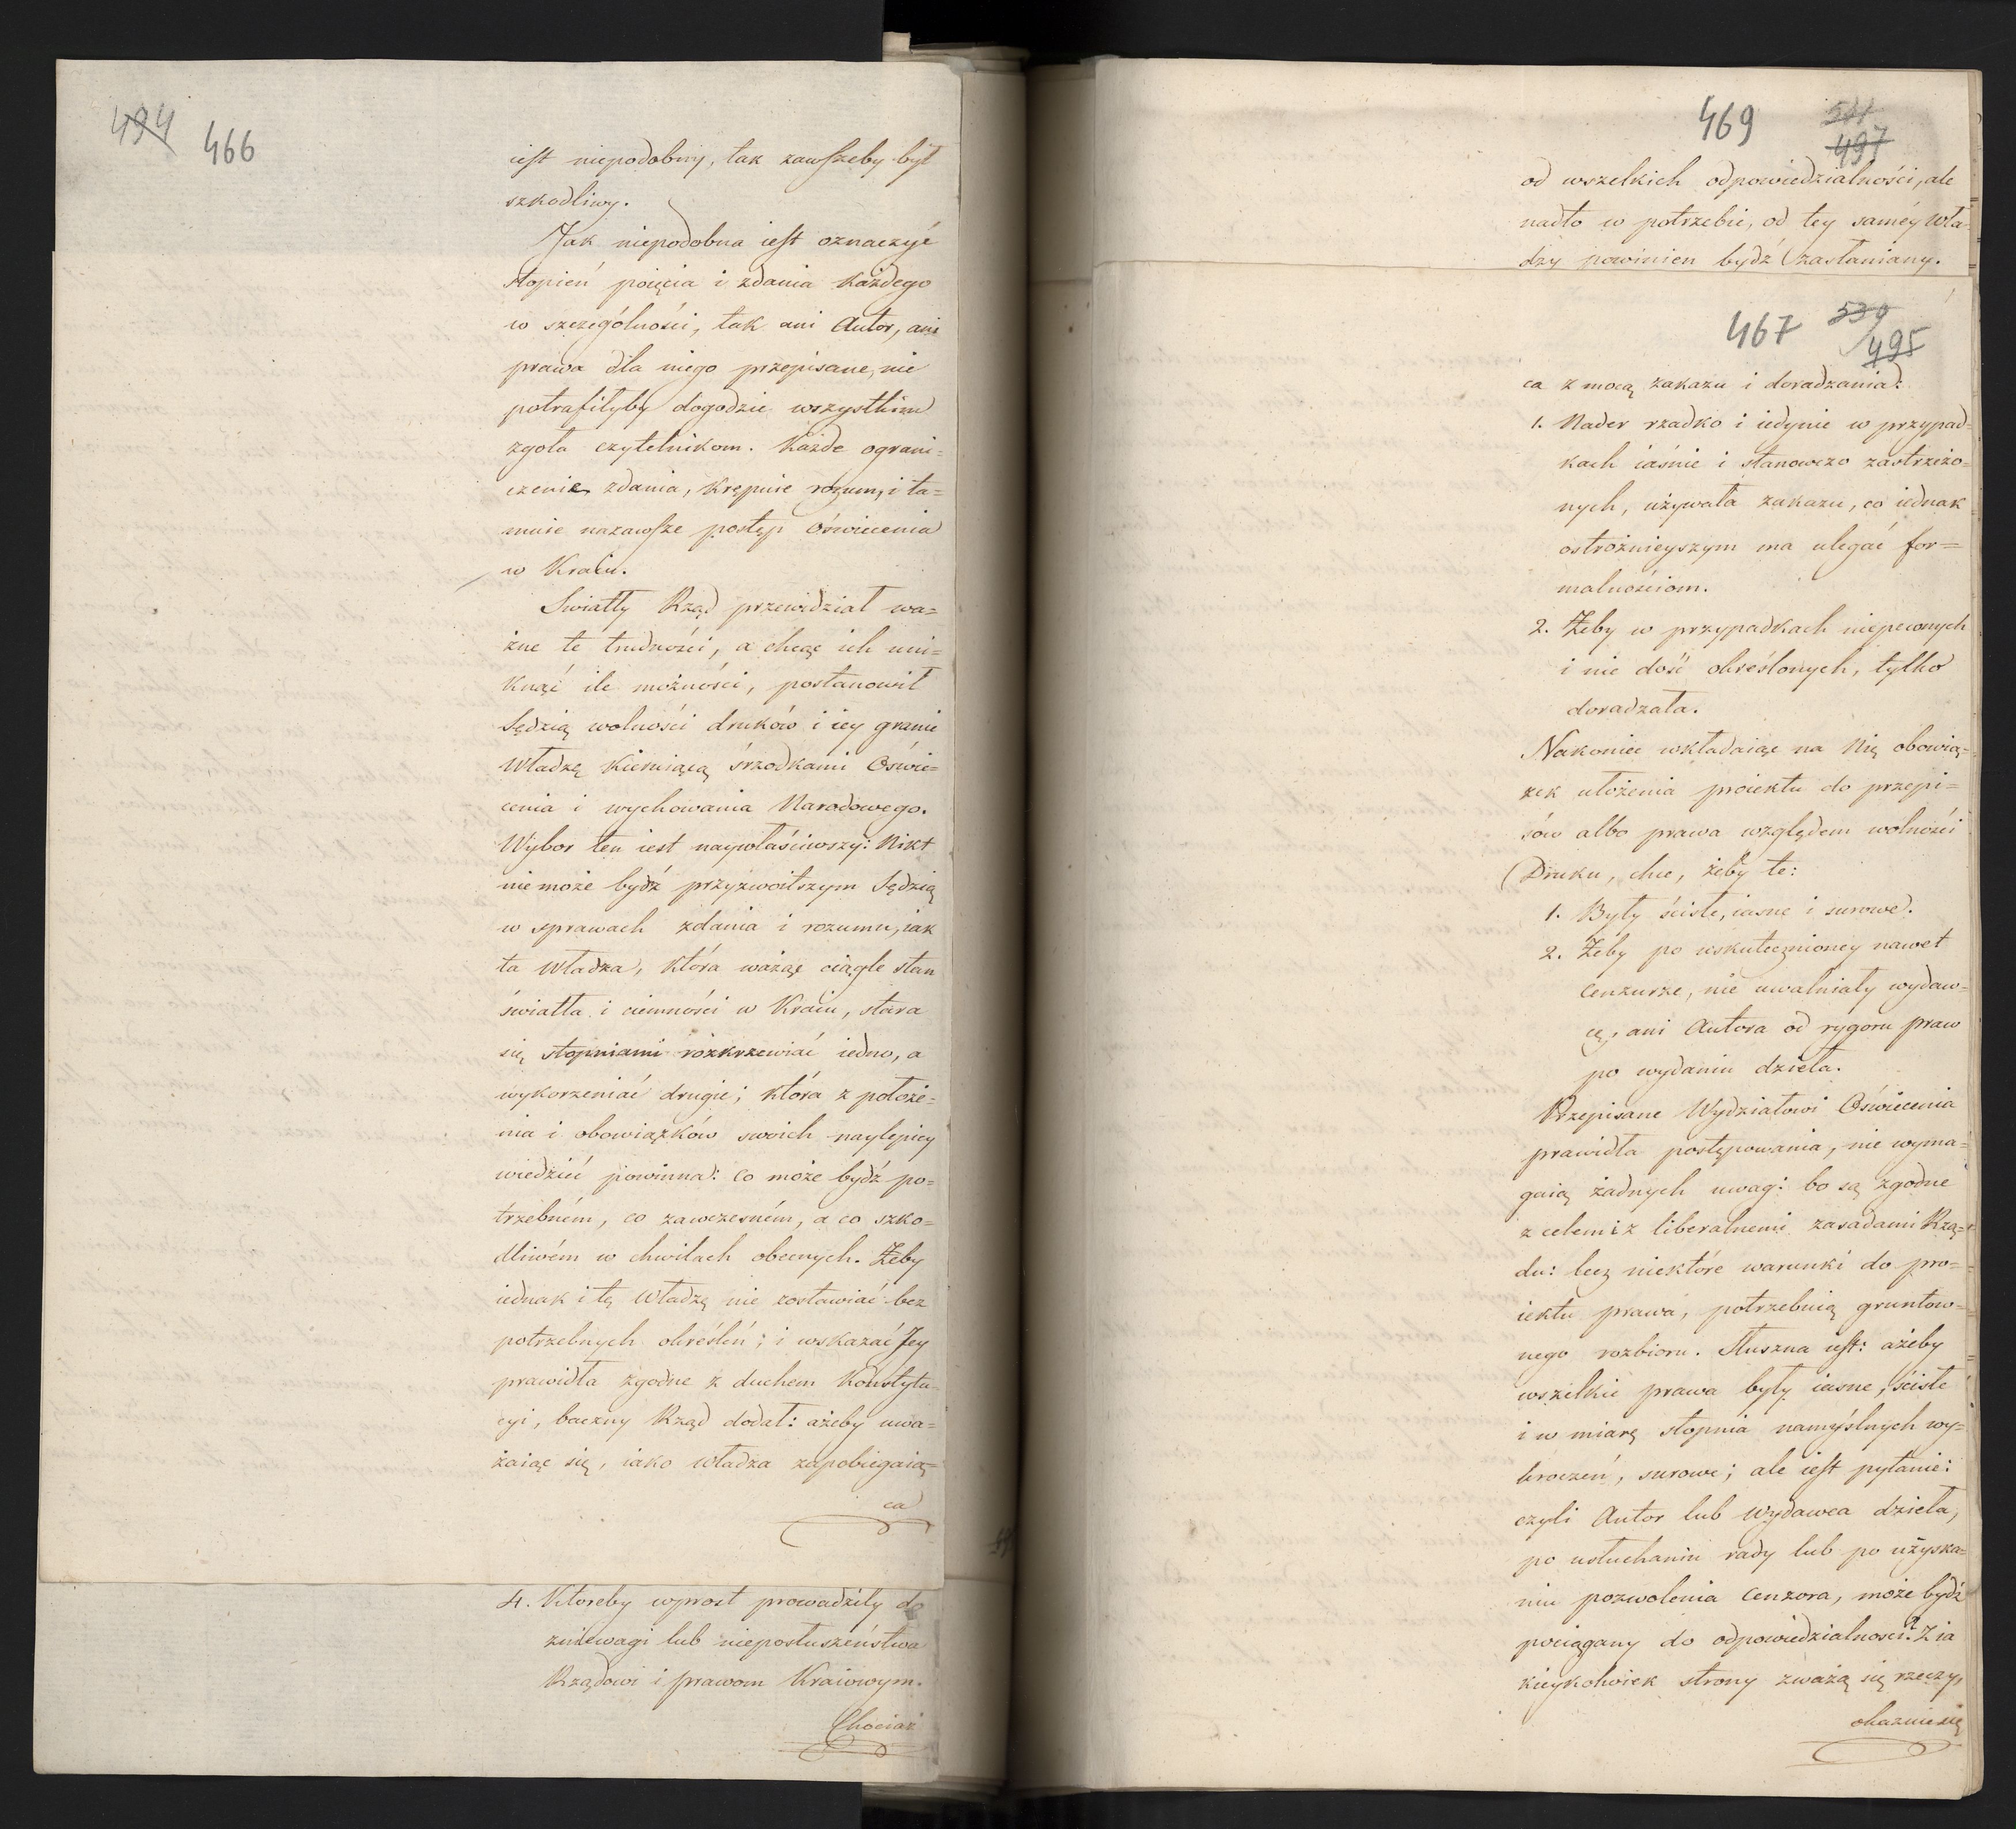 494 466
iest niepodobny, tak zawszeby był
szkodliwy.
Jak niepodobna iest oznaczyć
stopień poięcia i zdania każdego
w szczególności, tak ani Autor, ani
prawa dla niego przepisane, nie
potrafiłyby dogodzić wszystkim
zgoła czytelnikom. Każde ograni=
czenie zdania, krępuie rozum, i ta=
muie nazawsze postęp Oświecenia
w Kraiu.
Swiatły Rząd przewidział wa=
żne te trudności, a chcąc ich uni=
knąć ile możności, postanowił
Sędzią wolności druków i iey granic
Władzę kieruiącą śrzodkami Oświe=
cenia i wychowania Narodowego.
Wybor ten iest naywłaściwszy: Nikt
nie może bydź przyzwoitszym Sędzią
w sprawach zdania i rozumu, iak
ta Władza, która ważąc ciągle stan
światła i ciemności w Kraiu, stara
się stopniami rozkrzewiać iedno, a
wykorzeniać drugie; która z położe=
nia i obowiązków swoich naylepiey
wiedzieć powinna: co może bydź po=
trzebném, co zawczesném, a co szko=
dliwém w chwilach obecnych. Żeby
iednak i tę Władzę nie zostawiać bez
potrzebnych określeń; i wskazać Jey
prawidła zgodne z duchem Konstytu
cyi, baczny Rząd dodał: ażeby uwa=
żaiąc się, iako władza zapobiegaią=
ca
4. Ktoreby wprost prowadziły do
zniewagi lub nieposłuszeństwa
Rządowi i prawom Kraiowym.
Chociaż
469 511
497
od wszelkich odpowiedzialności, ale
nadto w potrzebie, od tey saméy Wła
dzy powinien bydź zasłaniany.
467 539
495
ca z mocą zakazu i doradzania:
1. Nader rzadko i iedynie w przypad=
kach iaśnie i stanowczo zastrzeżo=
nych, używała zakazu, co iednak
ostrożnieyszym ma ulegać for=
malnościom.
2. Żeby w przypadkach niepewnych
i nie dość określonych, tylko
doradzała.
Nakoniec wkładaiąc na Nią obowią=
zek ułożenia proiektu do przepi=
sów albo prawa względem wolności
Druku, chce, żeby te:
1. Były ścisłe, iasne i surowe.
2. Żeby po uskutecznioney nawet
Cenzurze, nie uwalniały wydaw=
cę, ani Autora od rygoru praw
po wydaniu dzieła.
Przepisane Wydziałowi Oświecenia
prawidła postępowania, nie wyma=
gaią żadnych uwag: bo są zgodne
z celem i z liberalnemi zasadami Rzą=
du: lecz niektóre warunki do pro=
iektu prawa, potrzebuią gruntow=
nego rozbioru. Słuszna iest: ażeby
wszelkie prawa były iasne, ścisłe
i w miarę stopnia namyślnych wy=
kroczeń, surowe; ale iest pytanie:
czyli Autor lub Wydawca dzieła,
po usłuchaniu rady lub po uzyska=
niu pozwolenia Cenzora, może bydź
pociągany do odpowiedzialności? Z ia
kieykolwiek strony zważą się rzeczy,
okazuie się